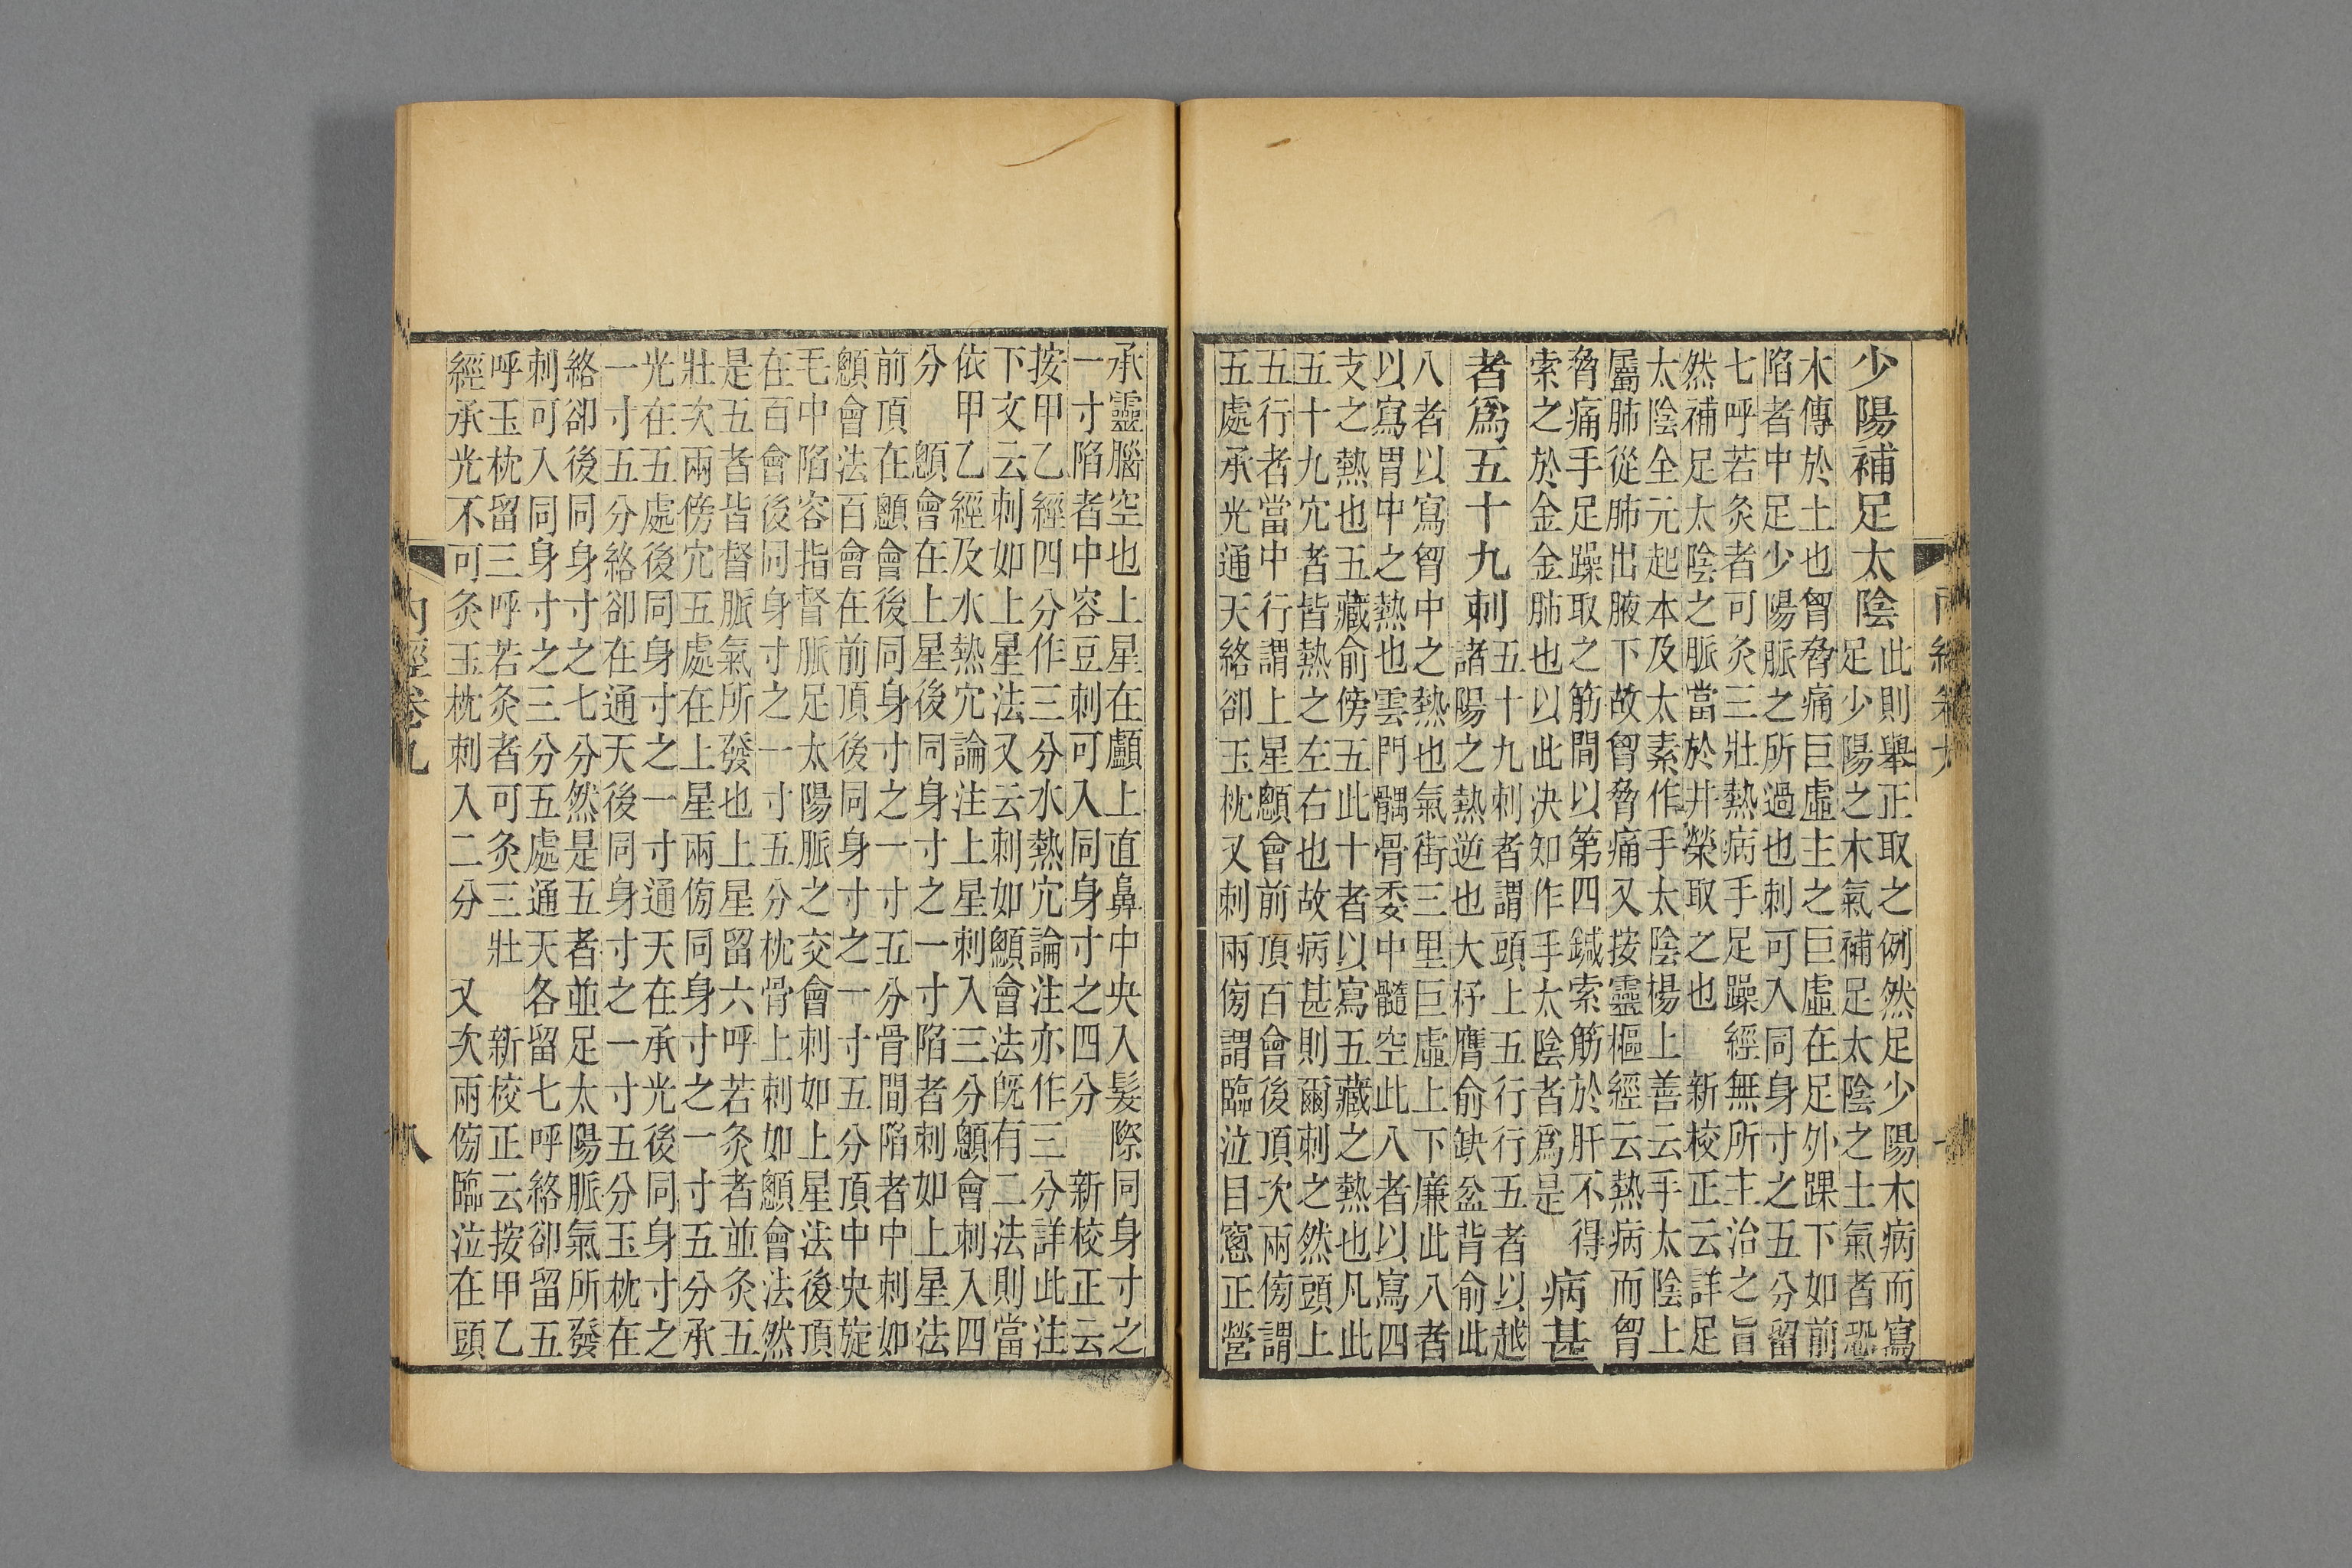 少陽補足太陰
此則舉正取之例然足少陽木病而寫
足少陽之木氣補足太陰之土氣者恐
木傳於土也胷脅痛巨虛主之巨虛在足外踝下如前
陷者中足少陽脈之所過也刺可入同身寸之五分留
七呼若灸者可灸三壯熱病手足躁經無所主治之旨
然補足太陰之脈當於井榮取之也　新校正云詳足
太陰全元起本及太素作手太陰楊上善云手太陰上
屬肺從肺出腋下故胷脅痛又按靈樞經云熱病而胷
脅痛手足躁取之筋間以第四鍼索筋於肝不得
索之於金金肺也以此決知作手太陰者爲是
病甚
者爲五十九刺
五十九刺者謂頭上五行行五者以越
諸陽之熱逆也大杼膺俞缺盆背俞此
八者以寫胷中之熱也氣街三里巨虛上下廉此八者
以寫胃中之熱也雲門髃骨委中髓空此八者以寫四
支之熱也五藏俞傍五此十者以寫五藏之熱也凡此
五十九穴者皆熱之左右也故病甚則爾刺之然頭上
五行者當中行謂上星顖會前頂百會後頂次兩傍謂
五處承光通天絡卻玉枕又刺兩傍謂臨泣目窻正營
承靈腦空也上星在顱上直鼻中央入髮際同身寸之
一寸陷者中容豆刺可入同身寸之四分　新校正云
按甲乙經四分作三分水熱穴論注亦作三分詳此注
下文云刺如上星法又云刺如顖會法旣有二法則當
依甲乙經及水熱穴論注上星刺入三分顖會刺入四
分　顖會在上星後同身寸之一寸陷者刺如上星法
前頂在顖會後同身寸之一寸五分骨間陷者中刺如
顖會法百會在前頂後同身寸之一寸五分頂中央旋
毛中陷容指督脈足太陽脈之交會刺如上星法後頂
在百會後同身寸之一寸五分枕骨上刺如顖會法然
是五者皆督脈氣所發也上星留六呼若灸者並灸五
壯次兩傍穴五處在上星兩傍同身寸之一寸五分承
光在五處後同身寸之一寸通天在承光後同身寸之
一寸五分絡卻在通天後同身寸之一寸五分玉枕在
絡卻後同身寸之七分然是五者並足太陽脈氣所發
刺可入同身寸之三分五處通天各留七呼絡卻留五
呼玉枕留三呼若灸者可灸三壯　新校正云按甲乙
經承光不可灸玉枕刺入二分　又次兩傍臨泣在頭
內經卷九
八